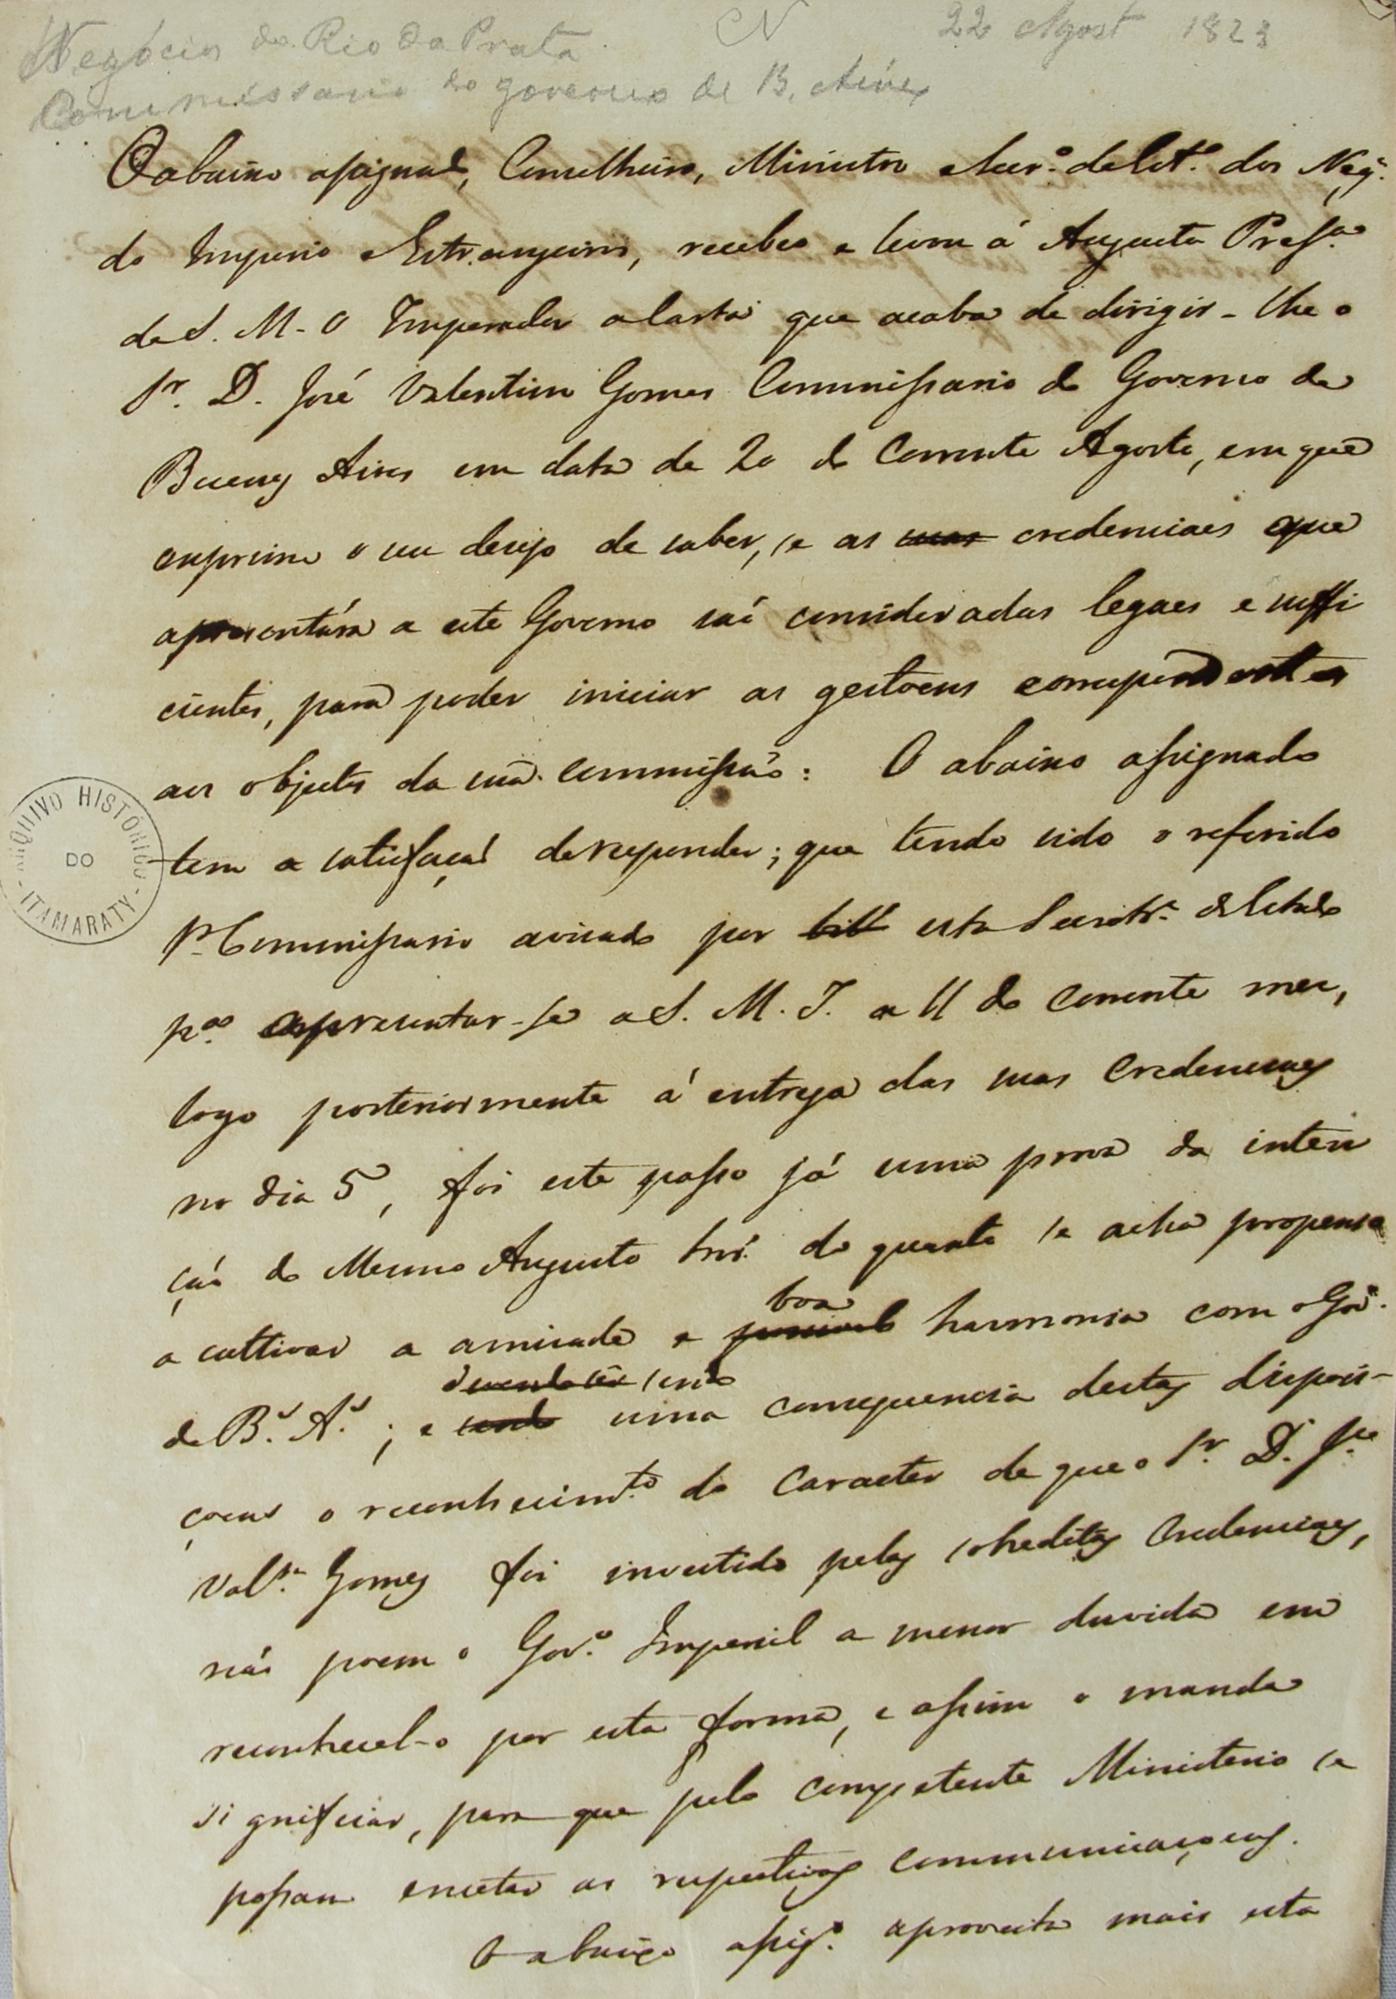 N
22 Agost 1823
Negócios do Rio da Prata
Commissario do governo de B. Aires
O abaixo assignad, Conselheiro, Ministro e Secr.º de Est.º dos Neg.
do Imperio e Estrangeiros, recebeo e levou á Augusta Pres.ça
de S. M. O Imperador a Carta que acaba de dirigir-lhe o
Sr. D. José Valentim Gomes Commissario do Governo de
Buenos Aires em data de 20 do Corrente Agosto, em que
exprime o seu desejo de saber, se as suas credenciaes que
apresentára a este Governo saõ consideradas legaes e suffi
cientes, para poder iniciar as gestoens correspondentes
aos objectos da sua commissaõ: O abaixo assignado
tem a satisfaçaõ de responder; que tendo sido o referido
Sr. Commissario avisado por esta Secretr.ª d'Estado
p.ª apresentar-se a S. M. I. a 11 do Corrente mez,
logo posteriormente á entrega das suas Credenciaes
no dia 5, foi este passo já uma prova da inten
çaõ do Mesmo Augusto Snr. do quanto se acha propenso
boa
a cultivar a amizade e harmonia com o Gov.º
sendo
de B.s A.s; e sendo uma consequencia destas dispozi-
çoens o reconhecim.to do Caracter de que o Sr. D. J.e
Val.m Gomes foi investido pelas sobreditas Credenciaes,
não poem o Gov.º Imperial a menor duvida em
reconhecel-o por esta forma, e assim o manda
significar, para que pelo competente Ministerio se
possam encetar as respectivas communicaçoens.
O abaixo assig.º aproveita mais esta
ARQUIVO HISTÓRICO
DO
- ITAMARATY -